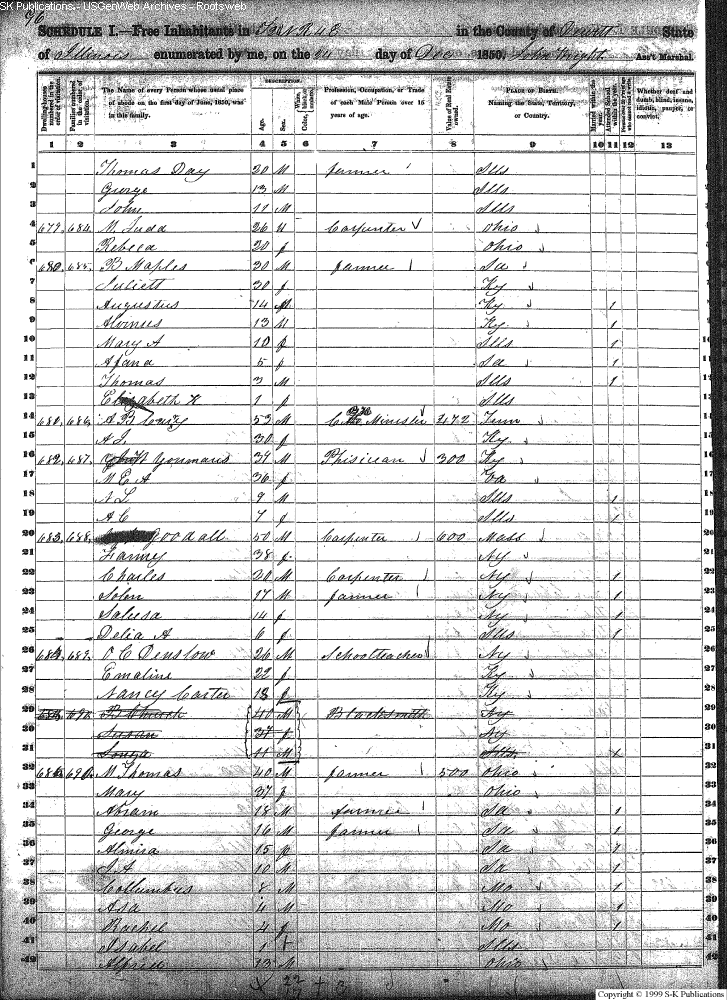 SK Publications - USGenWeb Archives - Rootsweb
96
SCHEDULE I.—Free Inhabitants in T 21 N R 4 E in the County of Dewitt State
of Illinois enumerated by me, on the day of Dec 1850. John Wright Ass't Marshal.
Dwelling-houses numbered in the order of visitation.
Families numbered in the order of visitation.
The Name of every Person whose usual place of abode on the first day of June, 1850, was in this family.
DESCRIPTION.
Age.
Sex.
Color, White, black, or mulatto.
Profession, Occupation, or Trade of each Male Person over 15 years of age.
Value of Real Estate owned.
PLACE OF BIRTH. Naming the State, Territory, or Country.
Married within the year.
Attended School within the year.
Whether deaf and dumb, blind, insane, idiotic, pauper, or convict.
1 2 3 4 5 6 7 8 9 10 11 12 13
1 Thomas Day 20 M farmer Ills 1
2 George 13 M Ills 2
3 John 11 M Ills 3
4 679. 684. M. Judd 26 M Carpenter Ohio 4
5 Rebeca 20 f Ohio 5
6 680. 685. B Maples 30 M farmer Ia 6
7 Juliett 30 f Ky 7
8 Augustus 14 M Ky 1 8
9 Alvinus 13 M Ky 1 9
10 Mary A 10 f Ills 1 10
11 5 f Ia 1 11
12 Thomas 3 M Ills 1 12
13 Elizabeth 1 f Ills 13
14 681. 686. A B 53 M Minister 472 Tenn 14
15 A. L. 30 f Ky 15
16 682. 687. Youmans 37 M Phisician 300 Ky 16
17 M. E. A 36 f Va 17
18 A L 9 M Ills 1 18
19 A C 7 f Ills 1 19
20 683. 688. Goodall 50 M Carpenter 600 Mass 20
21 Fanney 38 f Ny 21
22 Charles 20 M Carpenter Ny 1 22
23 Solon 17 M farmer Ny 1 23
24 14 f Ny 1 24
25 Delia A 6 f Ills 1 25
26 684. 689. O C Denslow 26 M Schoolteacher Ny 26
27 Emaline 22 f Ky 27
28 Nancy Carter 18 f Ky 28
29 685. 690. B Church 40 M Blacksmith Ny 29
30 Susan 37 f Ny 30
31 11 M Ills 1 31
32 685. 690. M Thomas 40 M farmer 500 Ohio 32
33 Mary 37 f Ohio 33
34 Abram 18 M farmer Ia 1 34
35 George 16 M farmer Ia 1 35
36 Almira 15 f Ia 1 36
37 J. A 10 M Ia 1 37
38 Collumbus 8 M Mo 1 38
39 Asa 4 M Mo 1 39
40 Rachel 4 f Mo 1 40
41 Isabel 1 f Ills 41
42 13 M Ohio 42
Copyright © 1999 S-K Publications